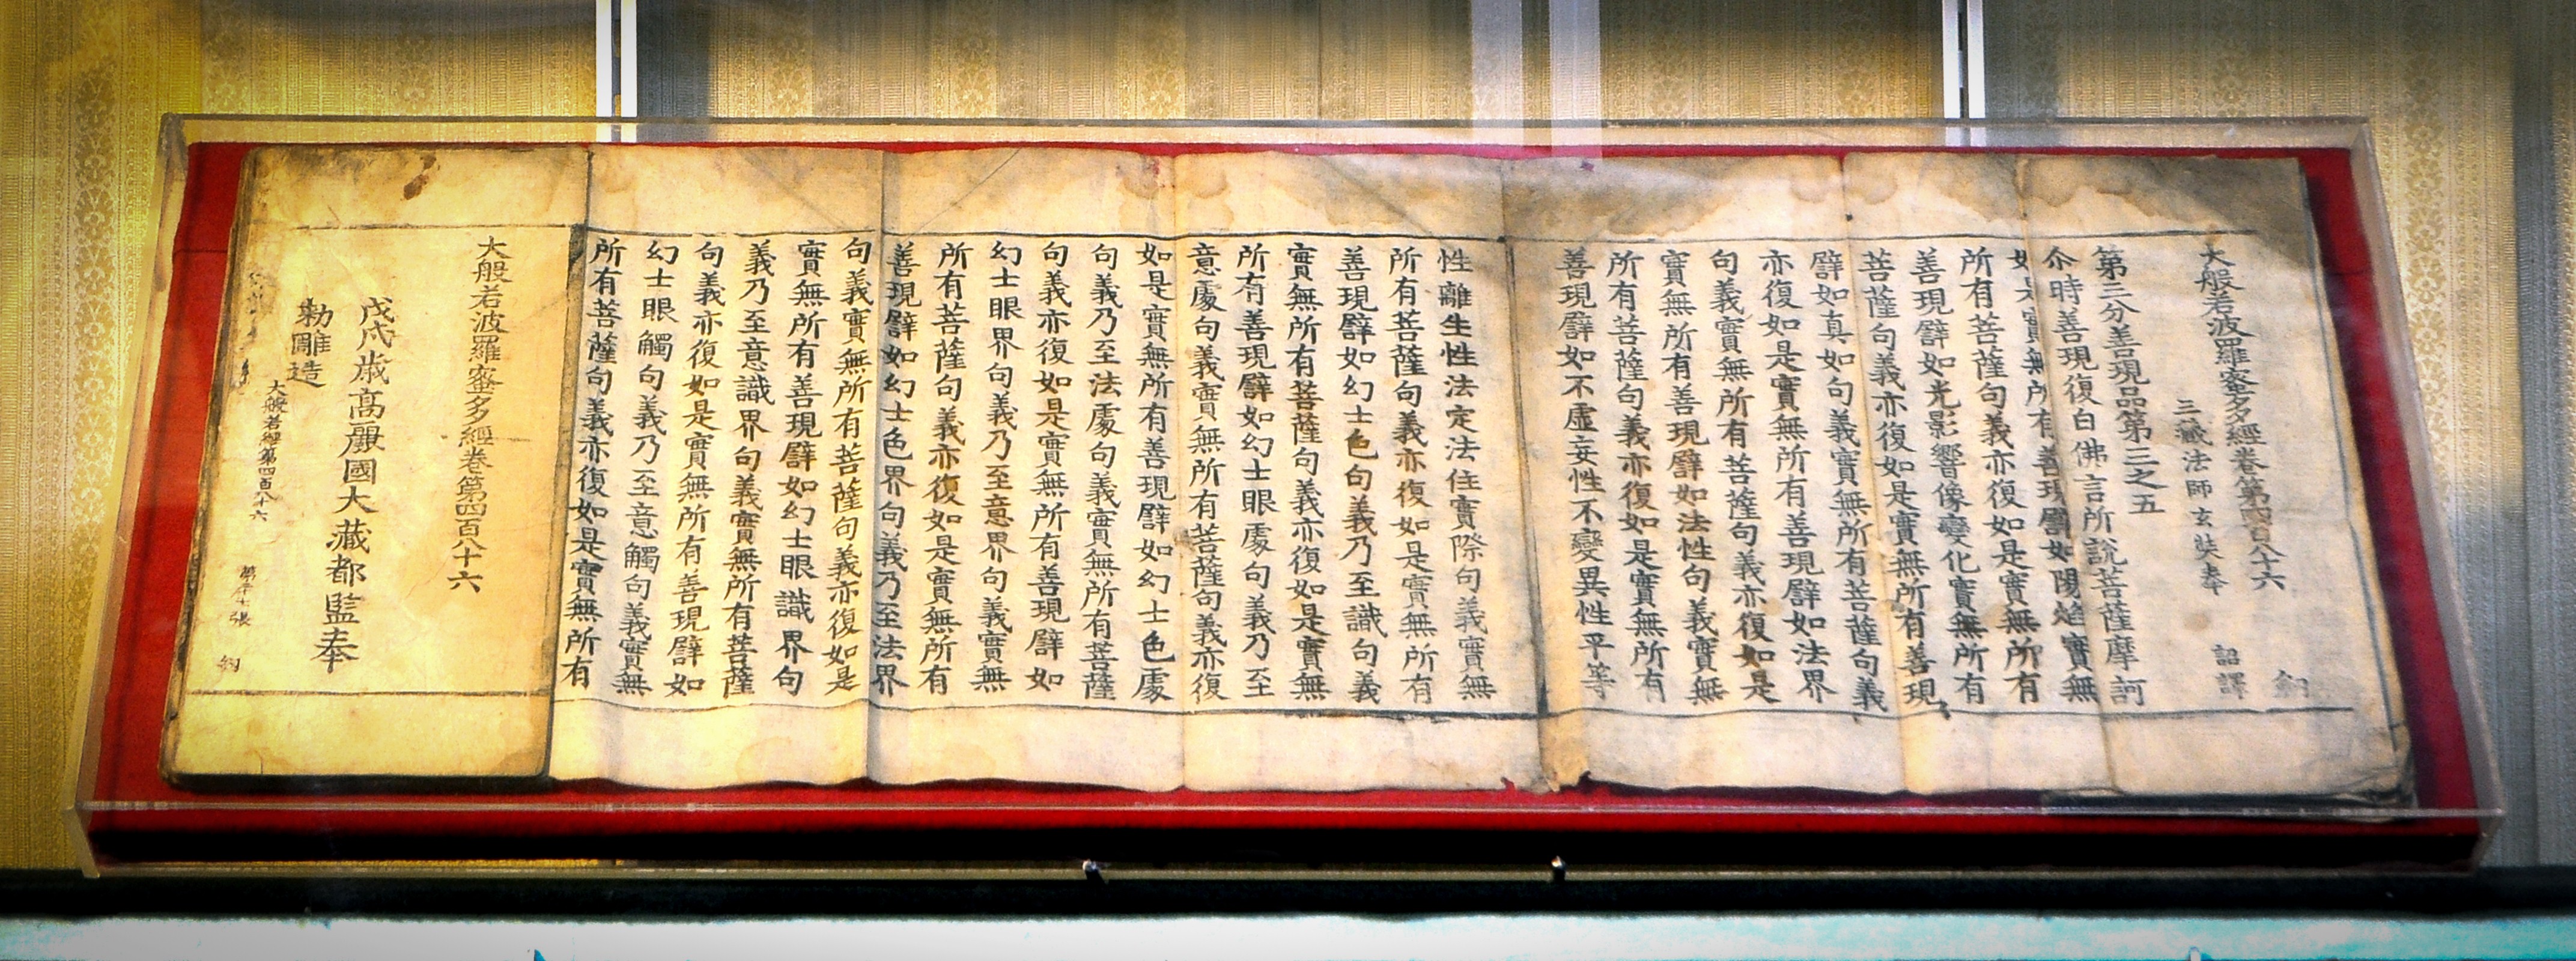 大般若波羅蜜多經卷第四百八十六 鈏
三藏法師玄奘奉 詔譯
第三分善現品第三之五
尒時善現復白佛言所說菩薩摩訶
如是實無所有善現譬如陽焰實無
所有菩薩句義亦復如是實無所有
善現譬如光影響像變化實無所有
菩薩句義亦復如是實無所有善現
譬如真如句義實無所有菩薩句義
亦復如是實無所有善現譬如法界
句義實無所有菩薩句義亦復如是
實無所有善現譬如法性句義實無
所有菩薩句義亦復如是實無所有
善現譬如不虛妄性不變異性平等
性離生性法定法住實際句義實無
所有菩薩句義亦復如是實無所有
善現譬如幻士色句義乃至識句義
實無所有菩薩句義亦復如是實無
所有善現譬如幻士眼處句義乃至
意處句義實無所有菩薩句義亦復
如是實無所有善現譬如幻士色處
句義乃至法處句義實無所有菩薩
句義亦復如是實無所有善現譬如
幻士眼界句義乃至意界句義實無
所有菩薩句義亦復如是實無所有
善現譬如幻士色界句義乃至法界
句義實無所有菩薩句義亦復如是
實無所有善現譬如幻士眼識界句
義乃至意識界句義實無所有菩薩
句義亦復如是實無所有善現譬如
幻士眼觸句義乃至意觸句義實無
所有菩薩句義亦復如是實無所有
大般若波羅蜜多經卷第四百八十六
戊戌歲高麗國大藏都監奉
勅雕造
大般若經第四百八十六